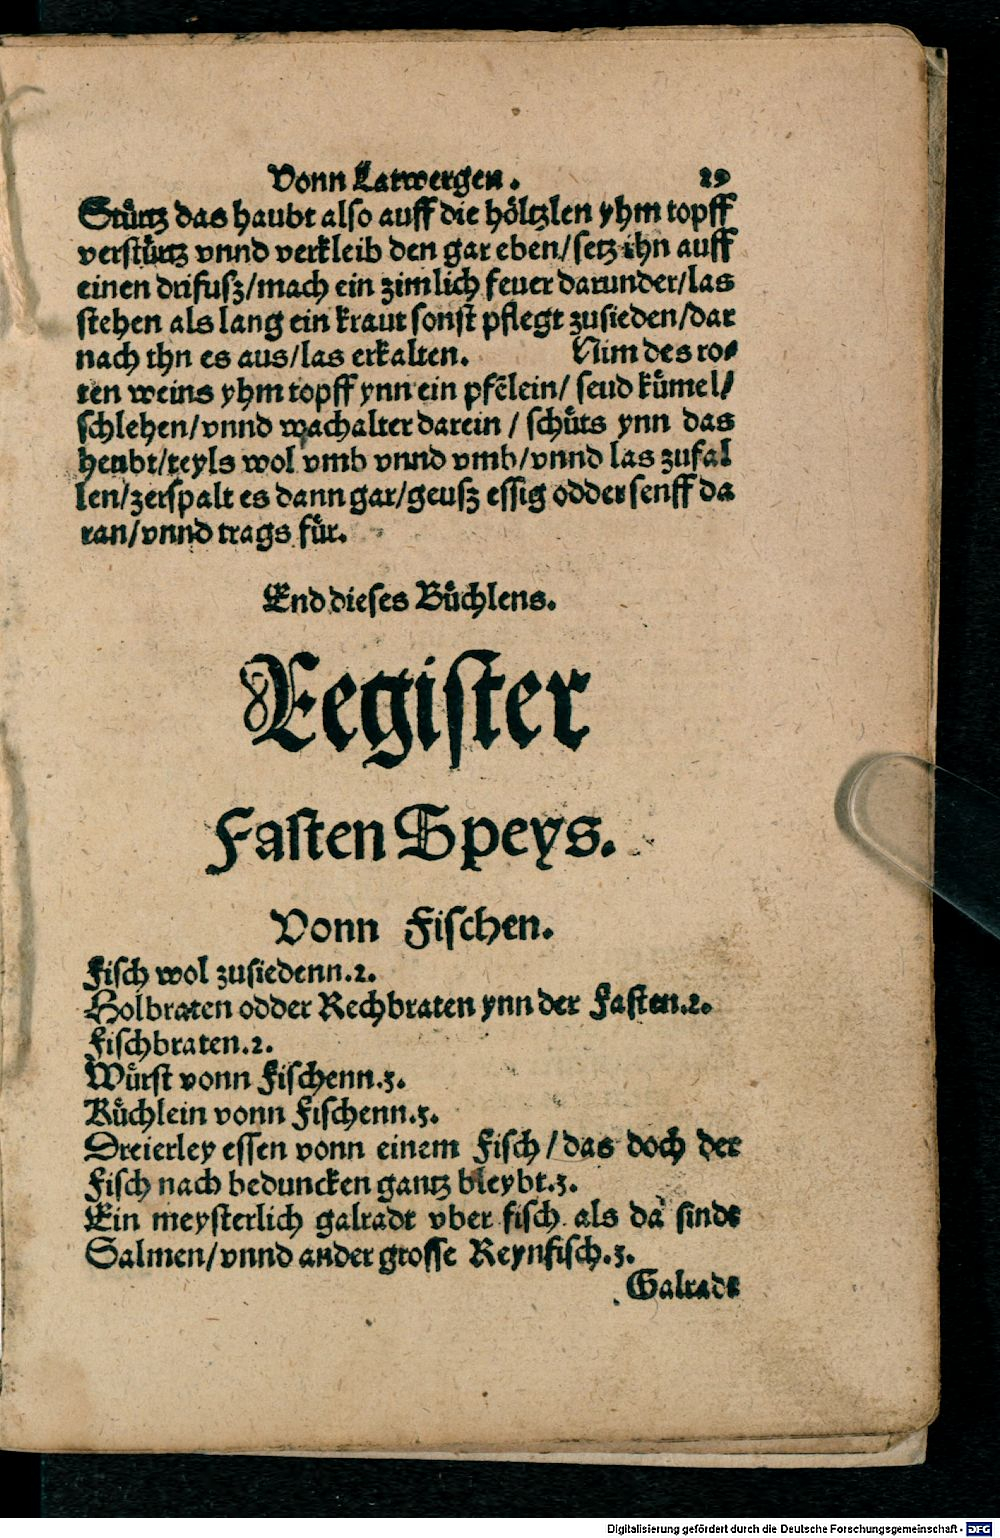 Vonn Latwergen. 29
Stuͤrtz das haubt also auff die hoͤltzlen yhm topff
verstuͤrtz vnnd verkleib den gar eben/setz ihn auff
einen drifusz/mach ein zimlich feuer darunder/las
stehen als lang ein kraut sonst pflegt zusieden/dar
nach thn es aus/las erkalten. Nim des ro⸗
ten weins yhm topff ynn ein pfẽlein/ seud kuͤmel/
schlehen/vnnd wachalter darein / schuͤts ynn das
heubt/teyls wol vmb vnnd vmb/vnnd las zufal
len/zerspalt es dann gar/geusz essig odder senff da
ran/vnnd trags fuͤr.
End dieses Buͤchlens.
Register
Fasten Speys.
Vonn Fischen.
Fisch wol zusiedenn.2.
Holbraten odder Rechbraten ynn der Fasten.2.
Fischbraten.2.
Wuͤrst vonn Fischenn.3.
Kuͤchlein vonn Fischenn.3.
Dreierley essen vonn einem Fisch/das doch der
Fisch nach beduncken gantz bleybt.3.
Ein meysterlich galradt vber fisch als da sindt
Salmen/vnnd ander grosse Reynfisch.3.
Galradt
Digitalisierung gefördert durch die Deutsche Forschungsgemeinschaft - DFG